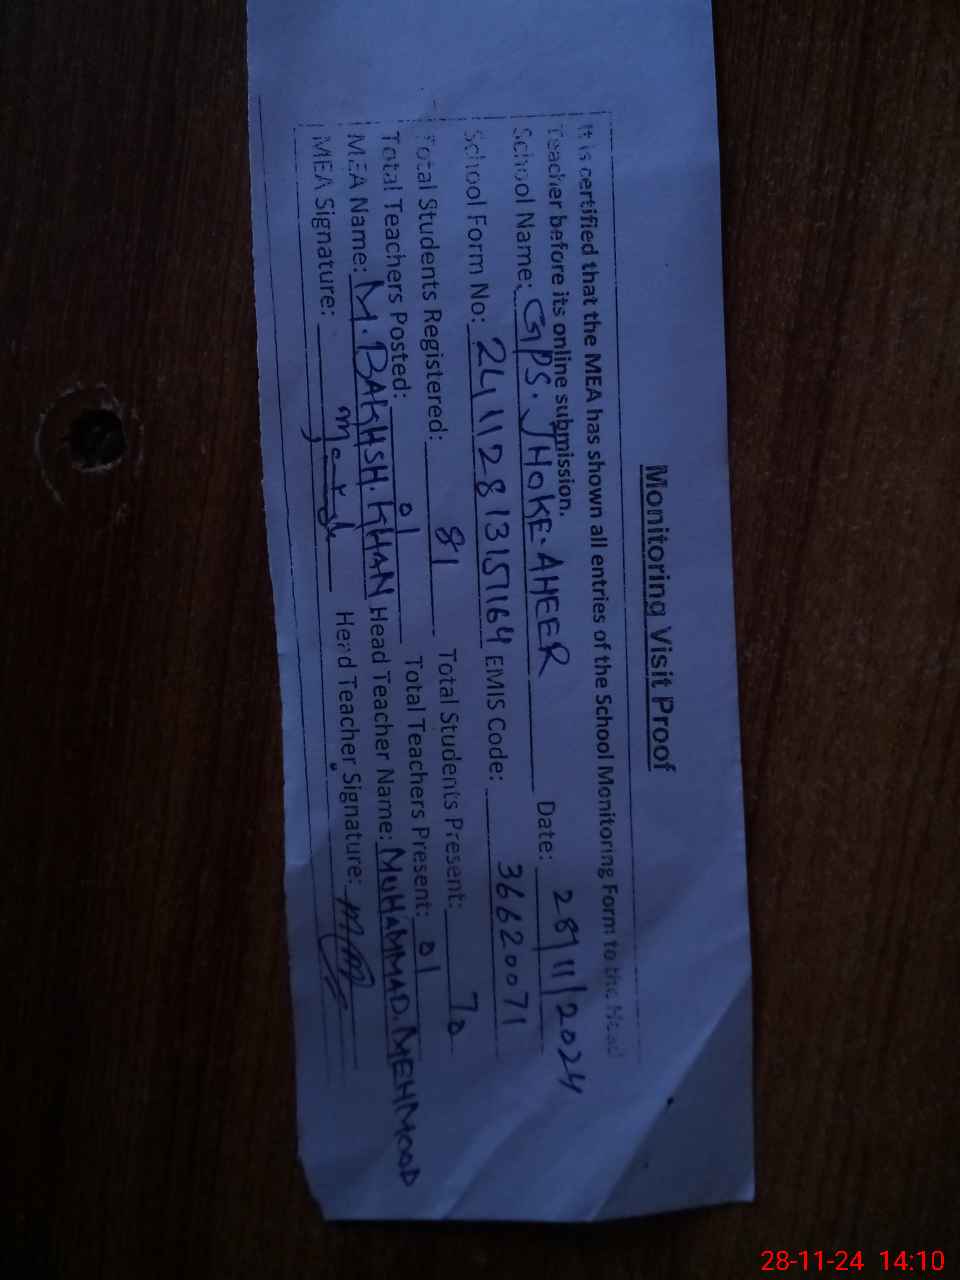 Monitoring Visit Proof
It is certified that the MEA has shown all entries of the School Monitoring Form to the Head
Teacher before its online submission.
School Name: GPS. JHOKE. AHEER Date: 28/11/2024
School Form No: 24112813151164 EMIS Code: 36620071
Total Students Registered: 81 Total Students Present: 70
Total Teachers Posted: 01 Total Teachers Present: 01
MEA Name: M. BAKHSH. KHAN Head Teacher Name: MUHAMMAD. MEHMOOD
MEA Signature: Head Teacher Signature:
28-11-24 14:10